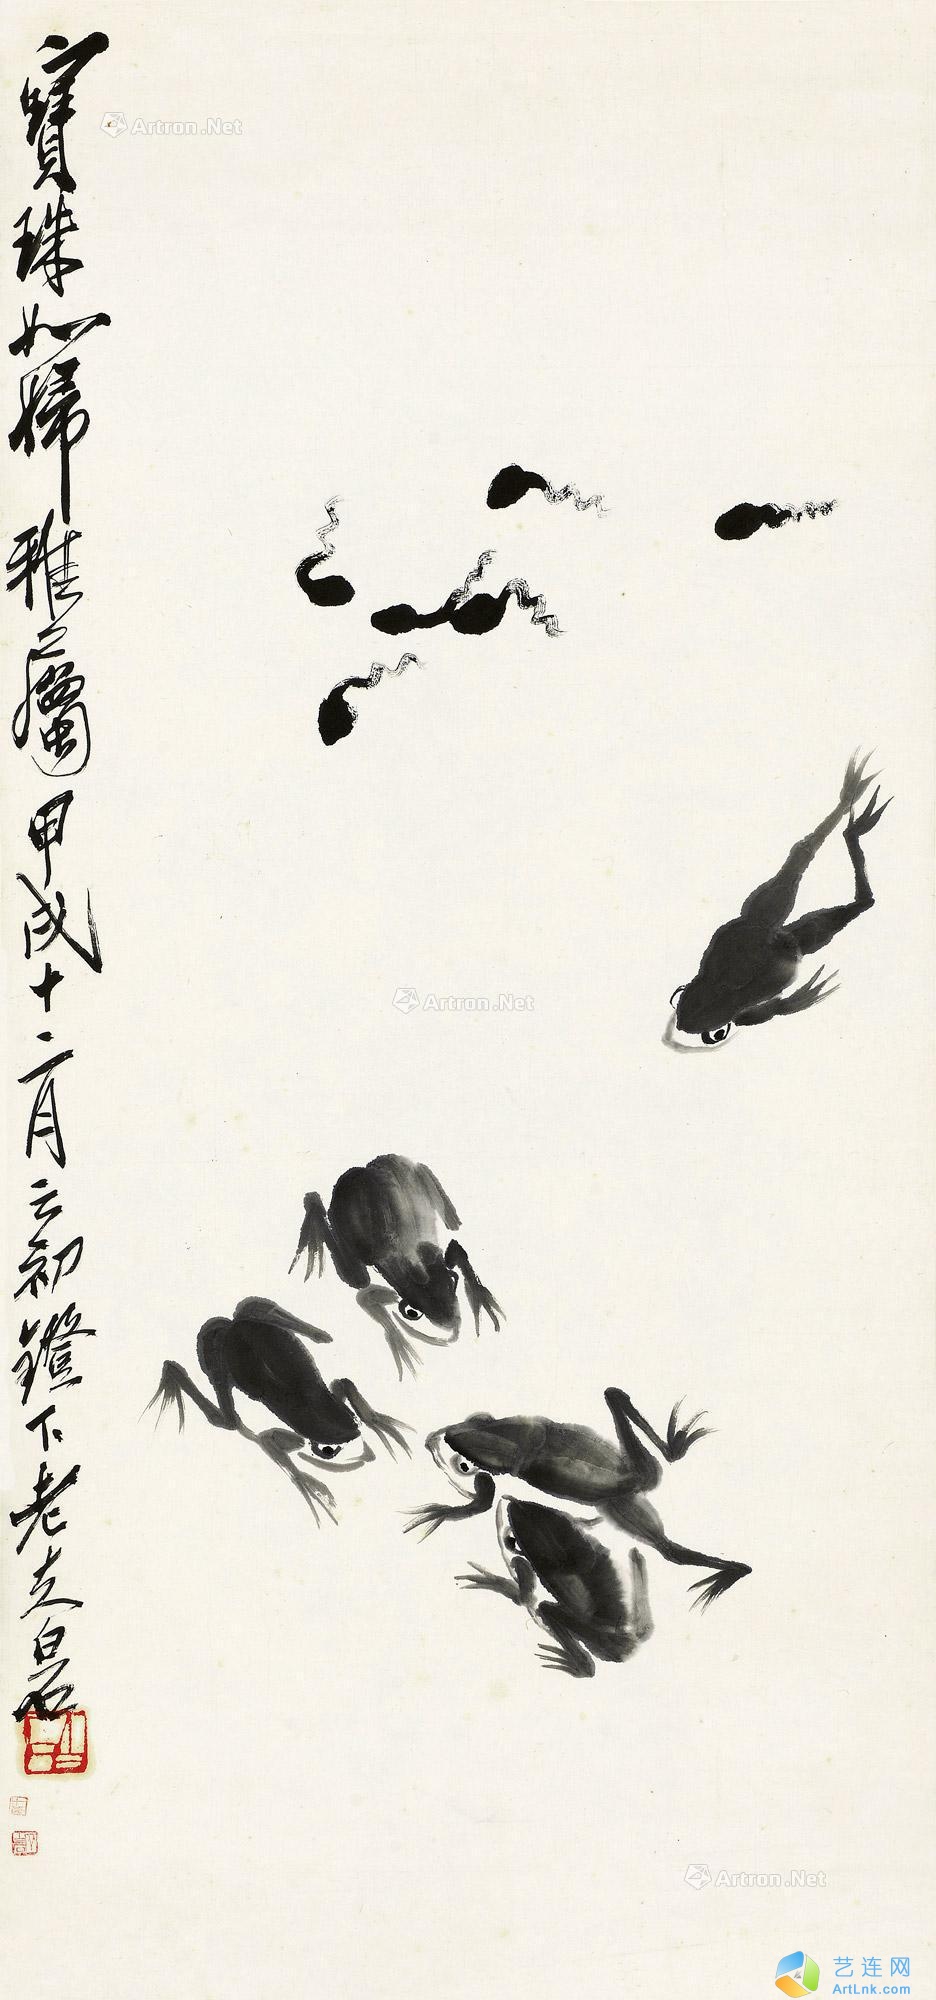 寶珠如掃雅屬甲戌十二月之初鐙下老夫白石
Artron.Net
Artron.Net
Artron.Net
艺连网
ArtLnk.com